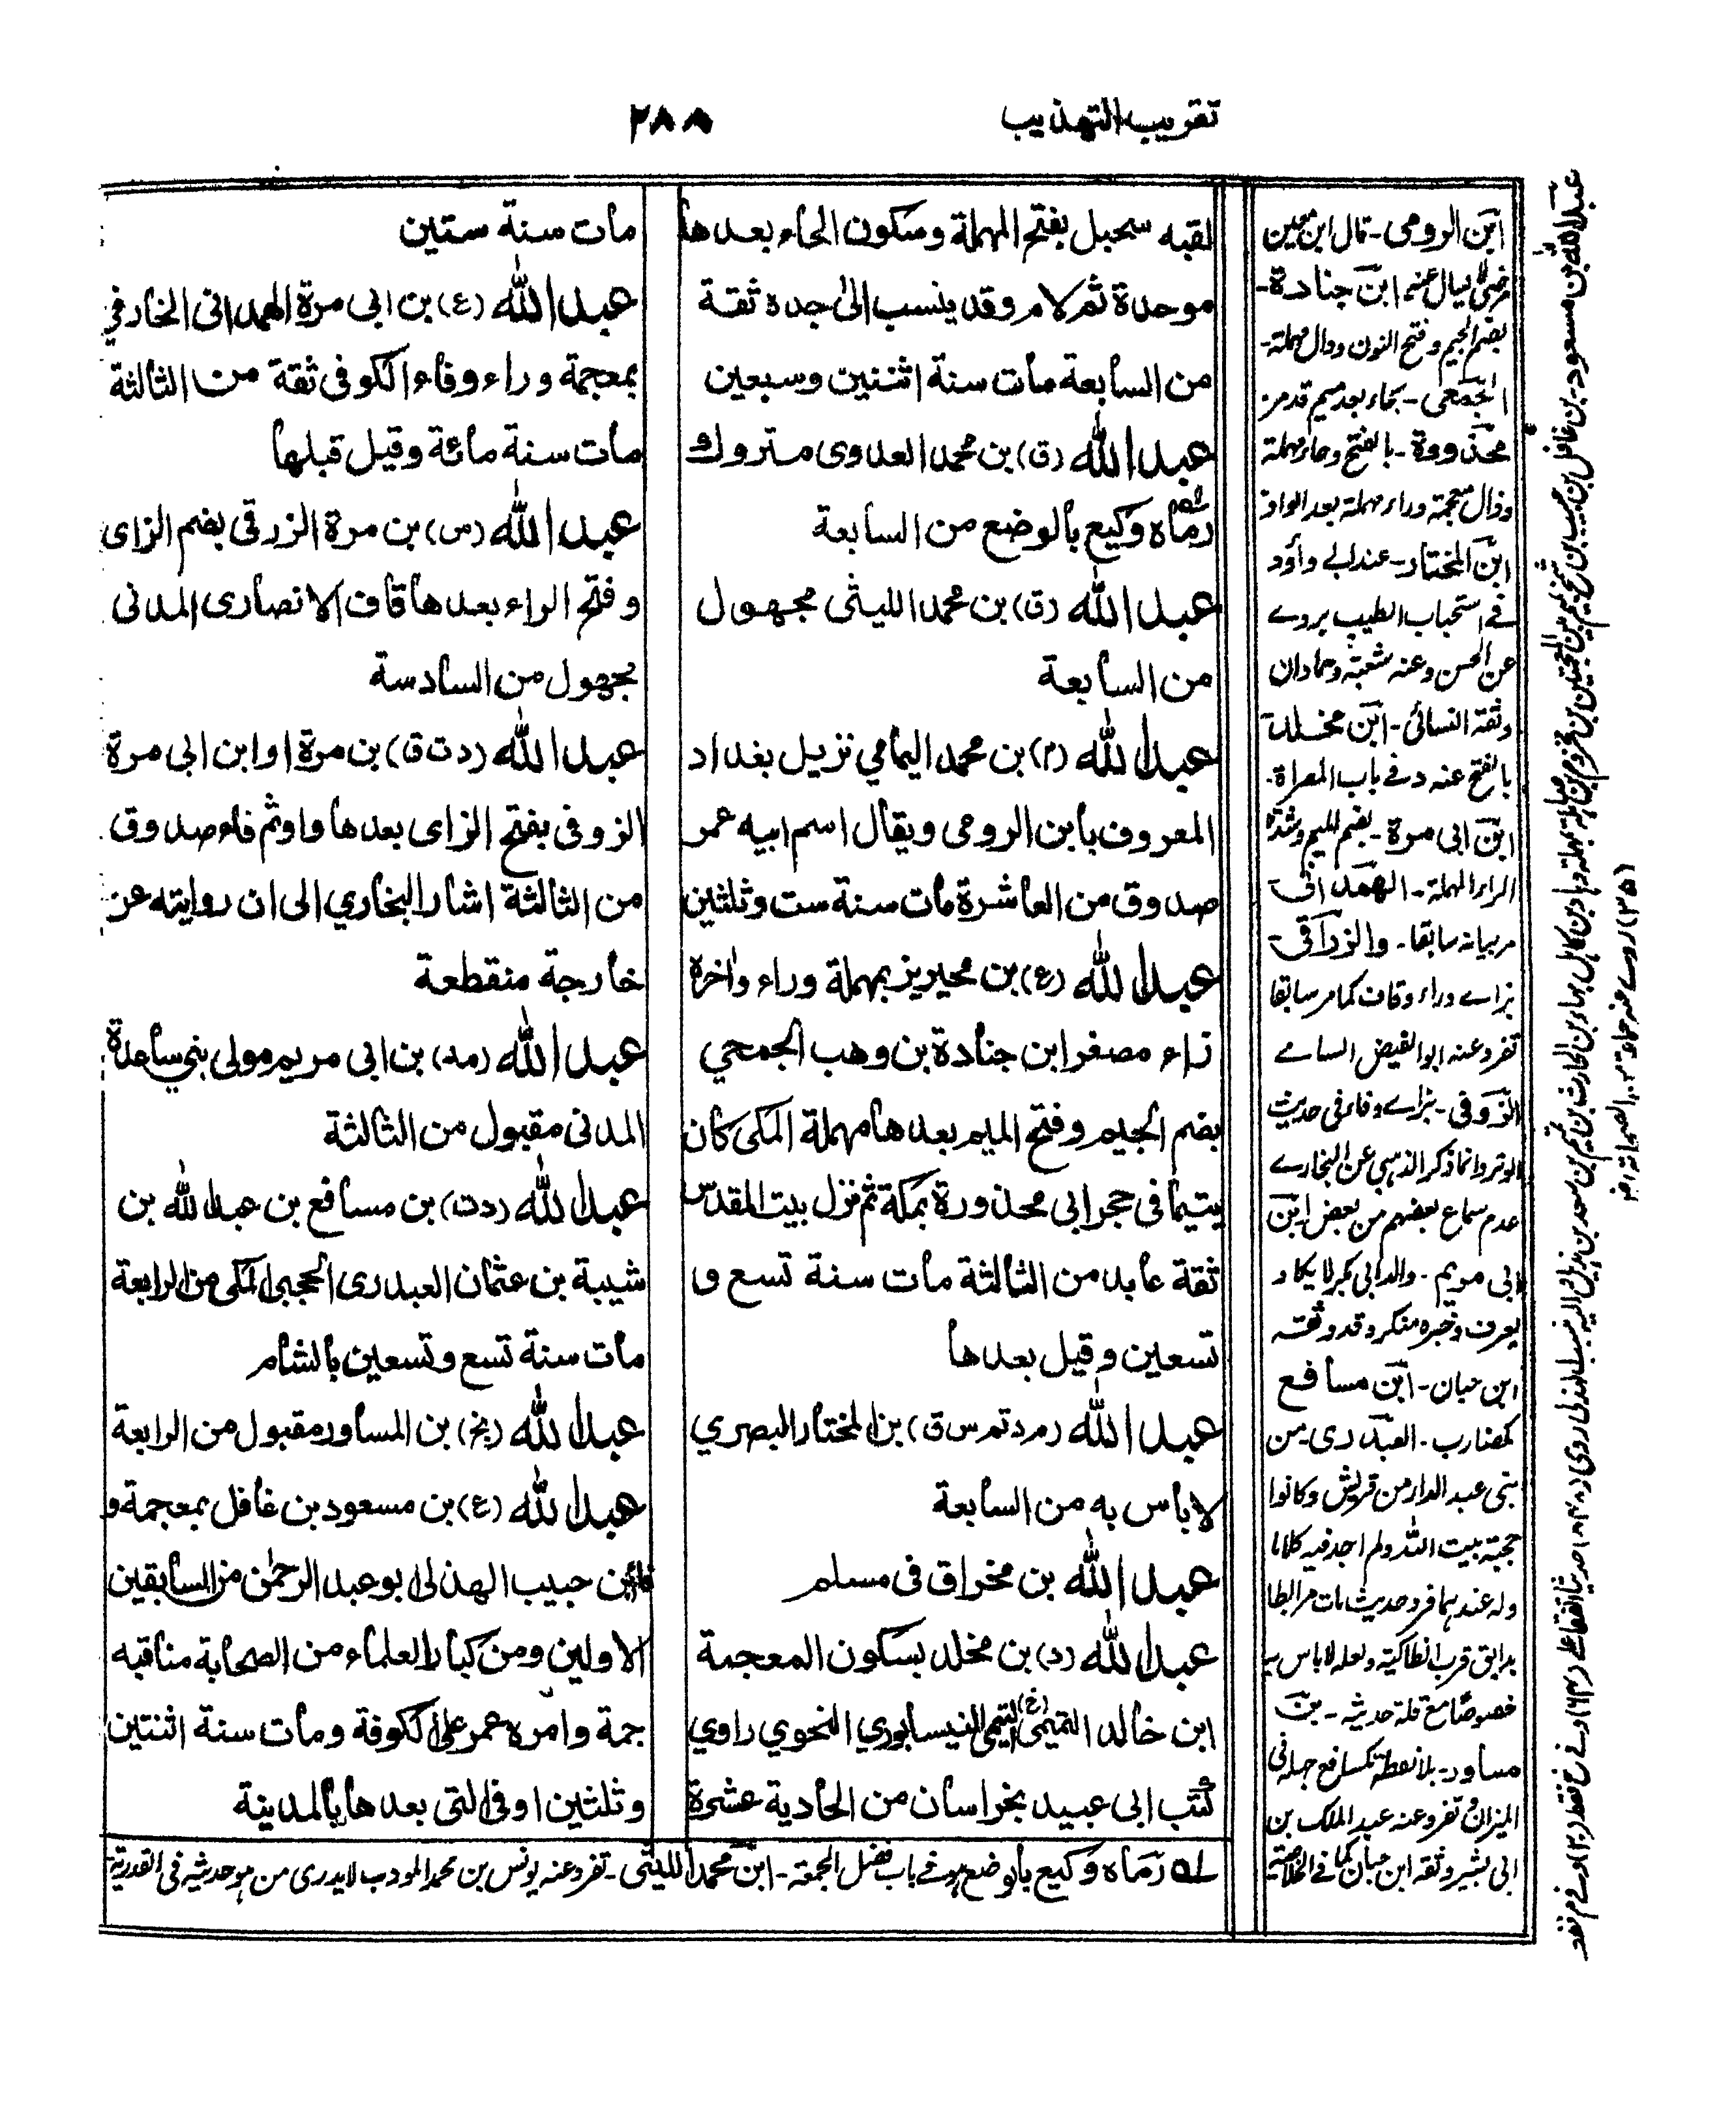 تقريب التهذيب
٢٨٨
لقبه سحبل بفتح المهملة وسكون الحاء بعدها
موحدة ثم لام وقد ينسب الى جده ثقة
من السابعة مات سنة اثنتين وسبعين
عبد الله (ق) بن محمد العدوى متروك
رماه وكيع بالوضع من السابعة
عبد الله (ق) بن محمد الليثى مجهول
من السابعة
عبد الله (م) بن محمد اليمامي نزيل بغداد
المعروف بابن الرومى ويقال اسم ابيه عمر
صدوق من العاشرة مات سنة ست وثلثين
عبد الله (ع) بن محيريز بمهملة وراء واخره
زاء مصغر ابن جنادة بن وهب الجمحي
بضم الجيم وفتح الميم بعدها مهملة المكى كان
يتيما فى حجر ابى محذورة بمكة ثم نزل بيت المقدس
ثقة عابد من الثالثة مات سنة تسع و
تسعين وقيل بعدها
عبد الله (م د تم س ق) بن المختار البصري
لا باس به من السابعة
عبد الله بن مخراق فى مسلم
عبد الله (د) بن مخلد بسكون المعجمة
ابن خالد التميمى (خ) التيمى النيسابوري النحوي راوي
كتب ابى عبيد بخراسان من الحادية عشرة
مات سنة ستين
عبد الله (ع) بن ابى مرة الهمدانى الخارفي
بمعجمة وراء وفاء الكوفى ثقة من الثالثة
مات سنة مائة وقيل قبلها
عبد الله (س) بن مرة الزرقى بضم الزاى
وفتح الراء بعدها قاف الانصارى المدنى
مجهول من السادسة
عبد الله (د ت ق) بن مرة او ابن ابى مرة
الزوفى بفتح الزاى بعدها واو ثم فاء صدوق
من الثالثة اشار البخاري الى ان روايته عن
خارجة منقطعة
عبد الله (مد) بن ابى مريم مولى بني ساعدة
المدنى مقبول من الثالثة
عبد الله (د ت) بن مسافع بن عبد الله بن
شيبة بن عثمان العبدرى الحجبى المكى من الرابعة
مات سنة تسع وتسعين بالشام
عبد الله (بخ) بن المساور مقبول من الرابعة
عبد الله (ع) بن مسعود بن غافل بمعجمة و
فاء بن حبيب الهذلى ابو عبد الرحمن من السابقين
الاولين ومن كبار العلماء من الصحابة مناقبه
جمة وامره عمر على الكوفة ومات سنة اثنتين
وثلثين او فى التى بعدها بالمدينة
ابن الرومى - قال ابن معين
ابن جنادة -
بضم الجيم وفتح النون ودال مهملة -
الجمحى - بحاء بعد ميم قد مر
محذورة - بالفتح وحاء مهملة
وذال معجمة وراء مهملة بعد الواو
ابن المختار - عند ابى داؤد
فى استحباب الطيب يروے
عن الحسن وعنه شعبة وحمادان
وثقه النسائى - ابن مخلد
بالفتح عنه د فى باب المعراة -
ابن ابى مرة - بضم الميم وشدة
الراء المهملة - الهمدانى -
مر بيانه سابقا - والزراقى -
بزاے وراء وقاف كما مر سابقا
تفرد عنه ابو الفيض السامے
الزوفى - بزاے وفاء فى حديث
الوتر وانما ذكر الذهبى عن البخارے
عدم سماع بعضهم من بعض ابن
ابى مريم - والد ابى بكر لا يكاد
يعرف وخبره منكر وقد وثقه
ابن حبان - ابن مسافع
كمضارب - العبدرى من
بنى عبد الدار من قريش وكانوا
حجبة بيت الله ولم اجد فيه كلاما
وله عندهما فرد حديث مات مرابطا
بدابق قرب انطاكية ولعله لا باس به
خصوصا مع قلة حديثه - بن
مساور - بلا نقطة كمسافع جهله فى
الميزان وتفرد عنه عبد الملك بن
ابى بشير وثقه ابن حبان كما فى الخلاصة
له رماه وكيع بالوضع فى باب فضل الجمعة - ابن محمد الليثى - تفرد عنه يونس بن محمد المودب لا يدرى من هو حديثه فى القدرية